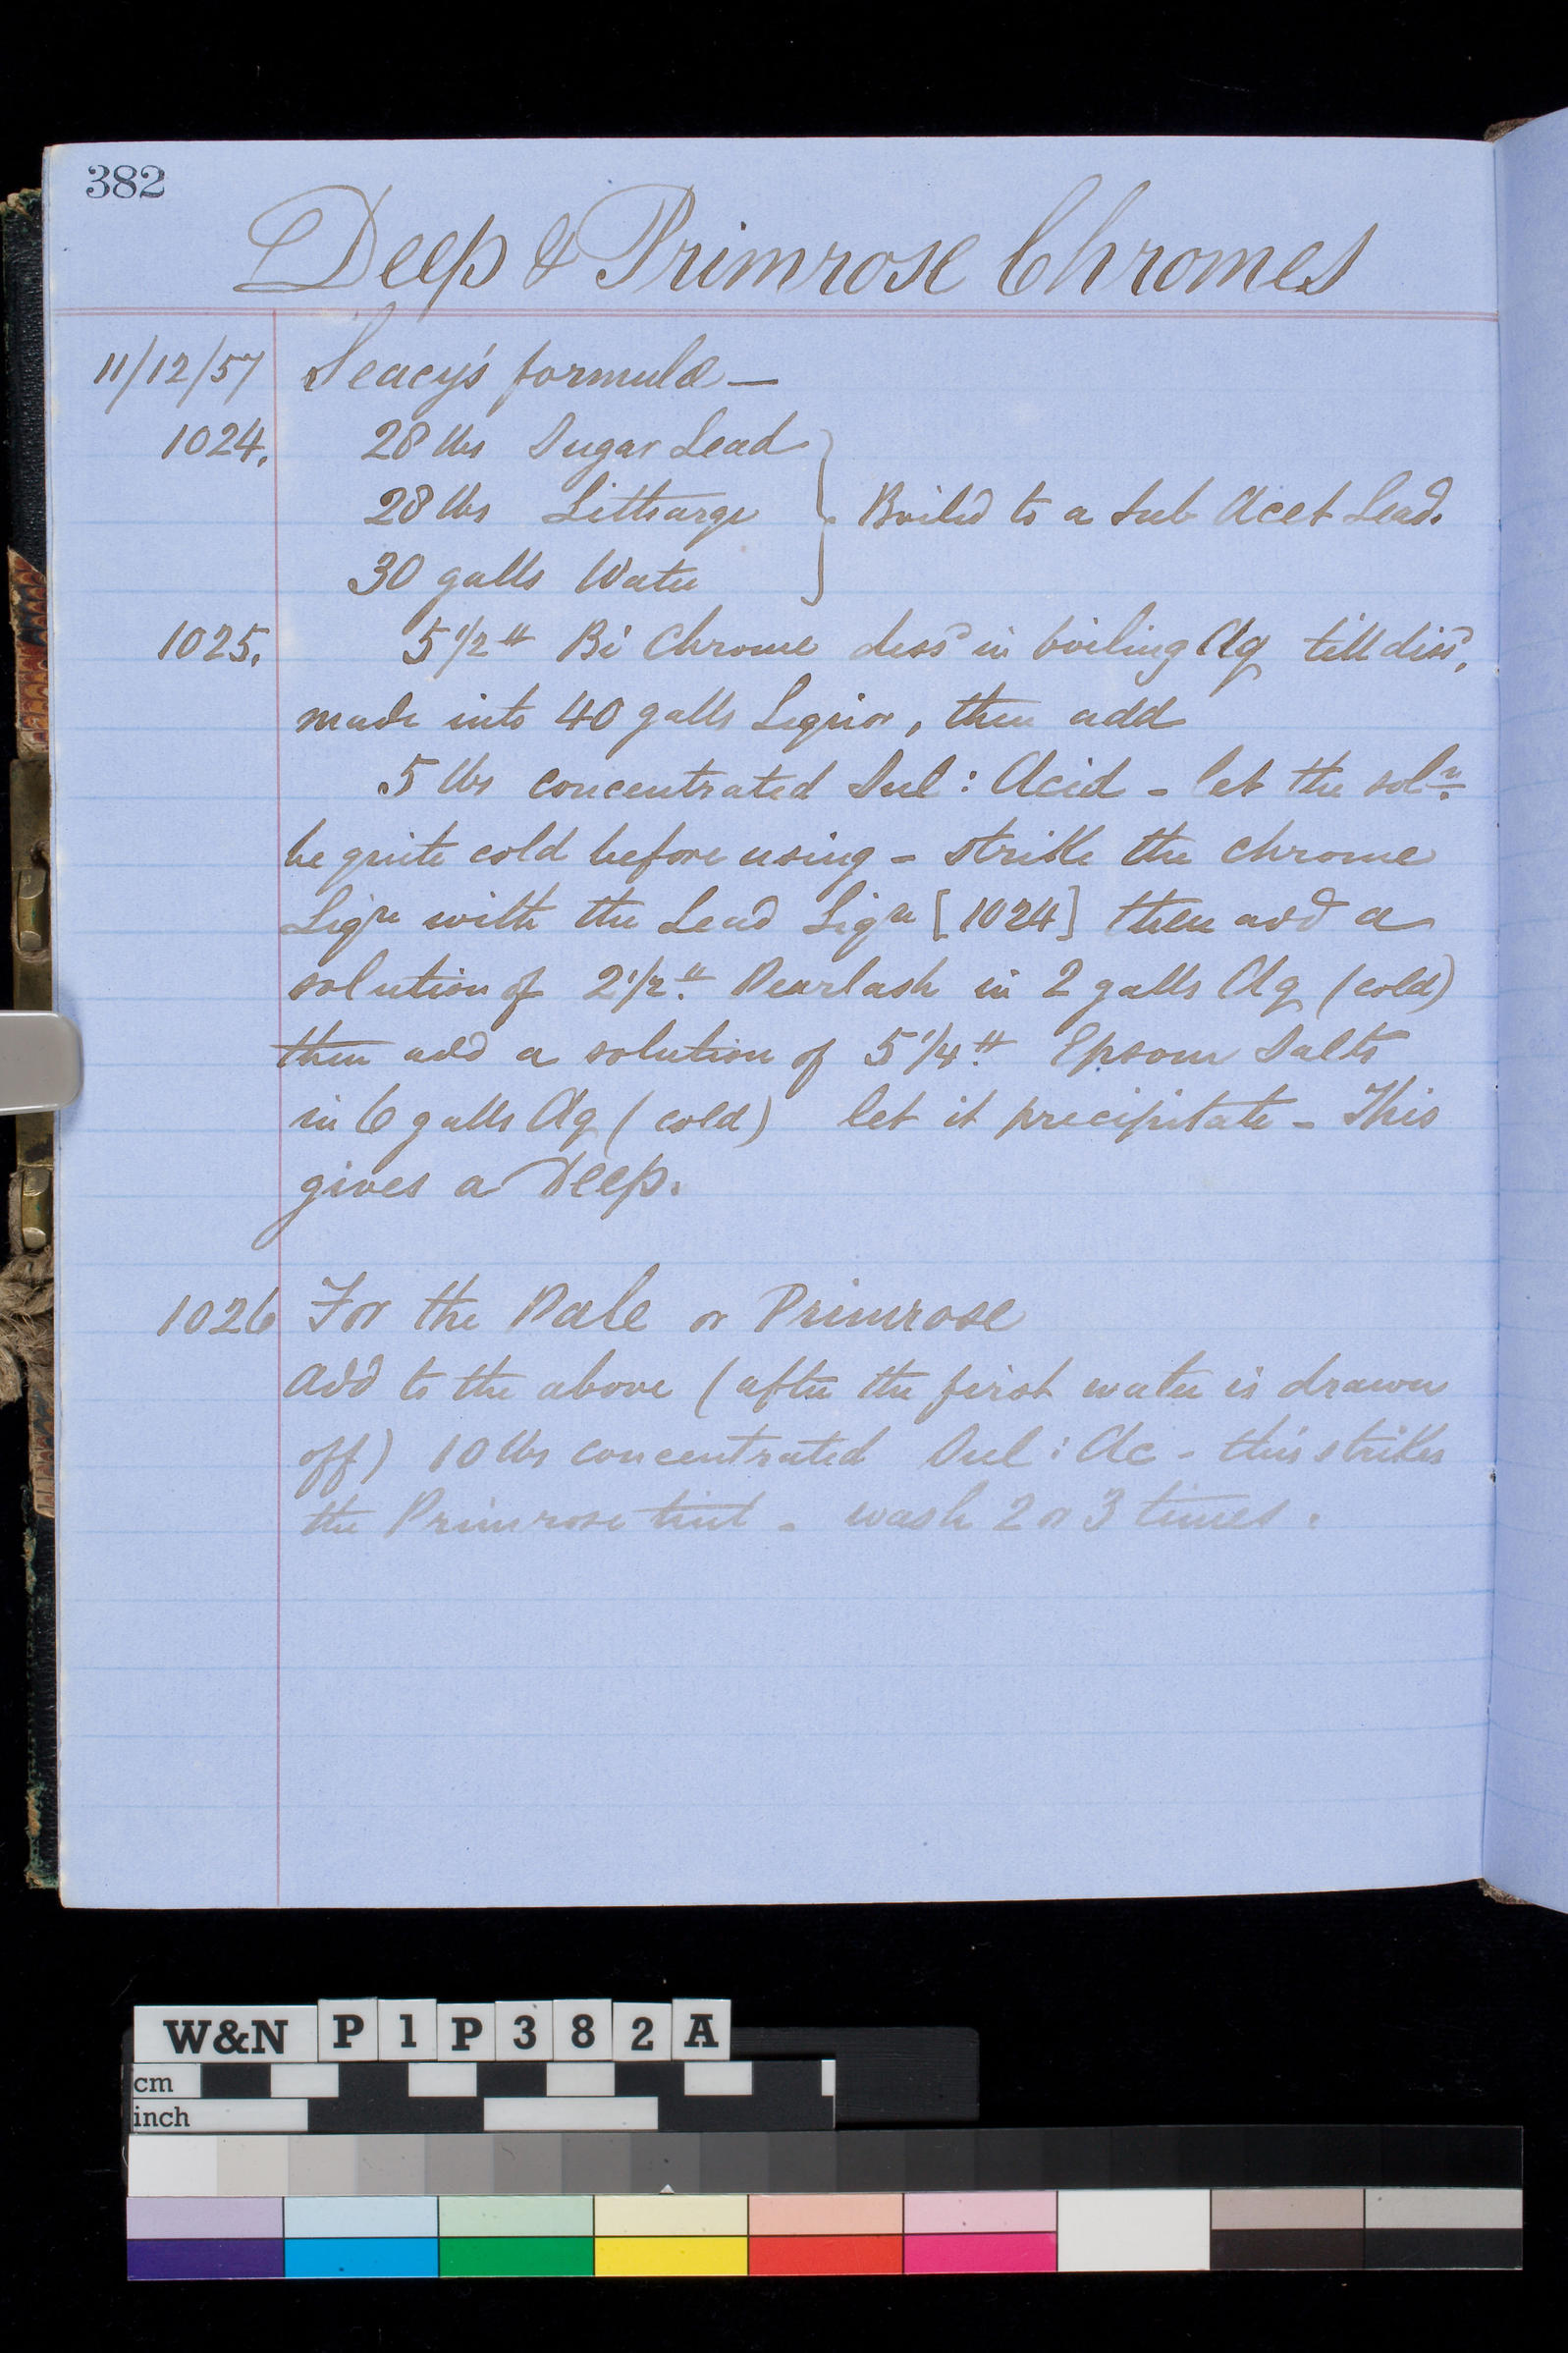 382
Deep & Primrose Chromes
11/12/57 Seacy's formula —
1024. 28 lbs Sugar Lead
28 lbs Litharge } Boiled to a Sub Acet Lead.
30 galls Water
1025. 5 1/2 # Bi Chrome diss^d in boiling Aq till diss^d,
made into 40 galls Liquor, then add
5 lbs concentrated Sul: Acid - let the sol^n.
be quite cold before using - strike the chrome
Liq^r with the Lead Liq^r [1024] then add a
solution of 2 1/2 # Pearlash in 2 galls Aq (cold)
then add a solution of 5 1/4 # Epsom Salts
in 6 galls Aq (cold) let it precipitate - This
gives a Deep.
1026 For the Pale or Primrose
Add to the above (after the first water is drawn
off) 10 lbs concentrated Sul: Ac - this strikes
the Primrose tint - wash 2 or 3 times.
W&N P1P382A
cm
inch